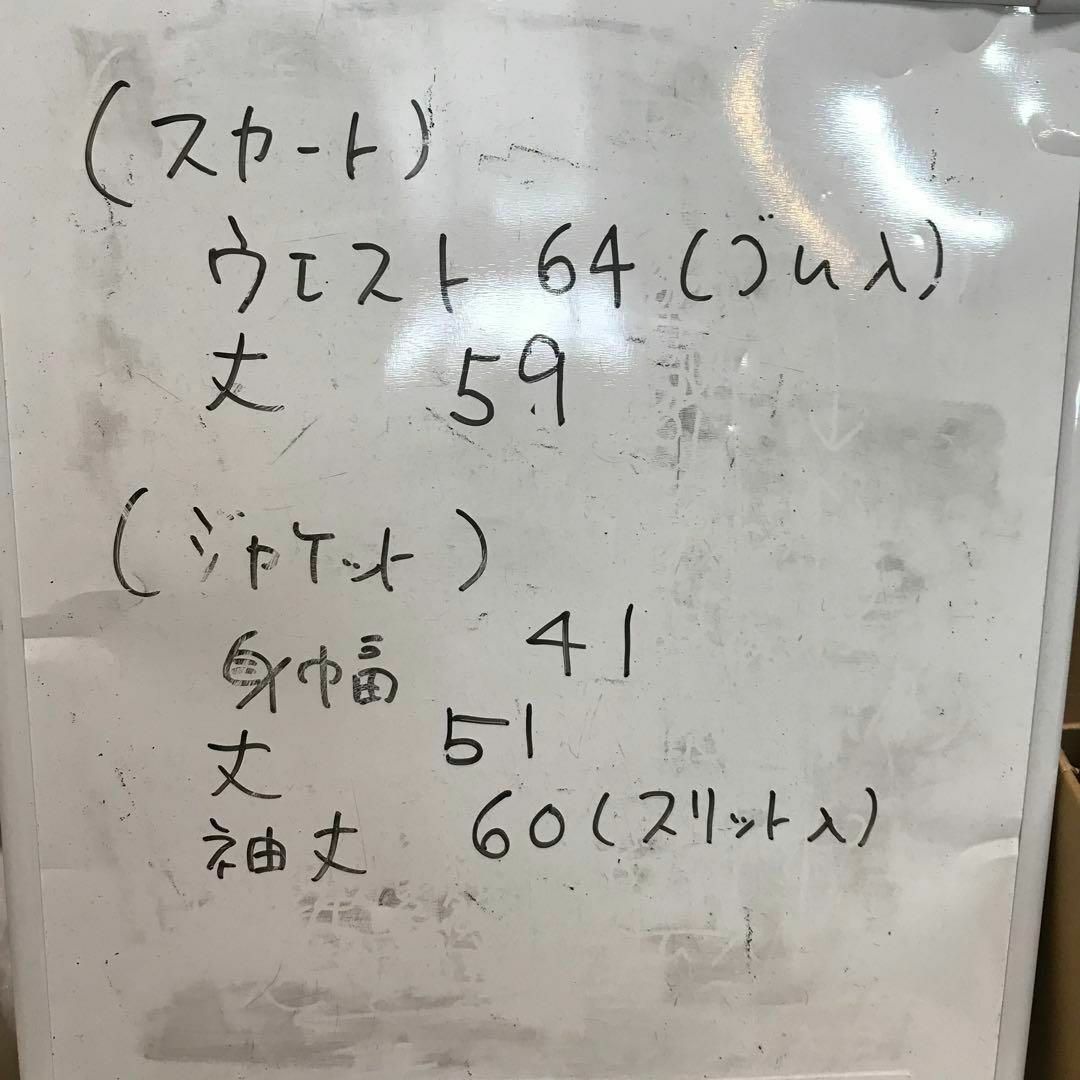 (スカート)
ウエスト 64 (ゴム入)
丈 59
(ジャケット)
身巾幅 41
丈 51
袖丈 60(スリット入)